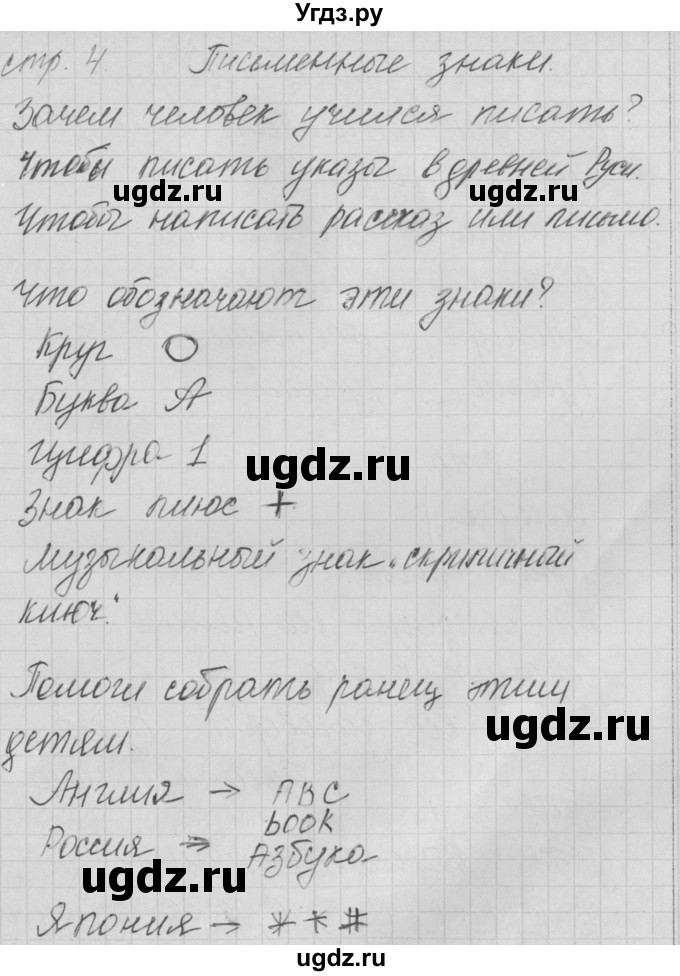 Угдз.ру
стр. 4. Письменные знаки.
Зачем человек учился писать?
Чтобы писать указы в древней Руси.
ugdz.ru ugdz.ru
Чтобы написать рассказ или письмо.
Что обозначают эти знаки?
Круг О
Буква А
Цифра 1
ugdz.ru
Знак плюс +
Музыкальный знак "скрипичный
ключ."
Помоги собрать ранец этим
ugdz.ru
детям.
Англия → ABC
book
Россия → Азбука
ugdz.ru
Япония → * * #
ugdz.ru